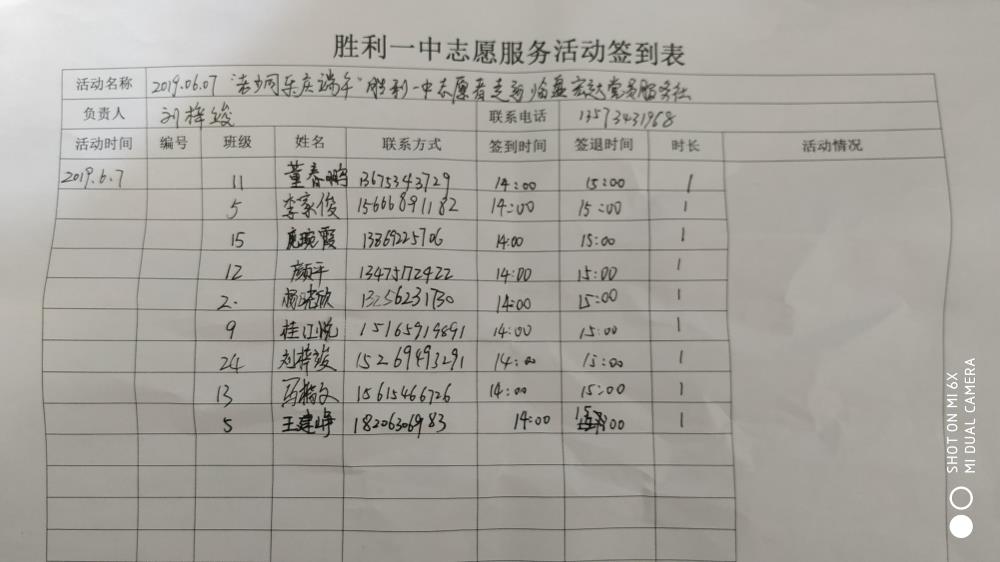 胜利一中志愿服务活动签到表
活动名称 2019.06.07 "老少同乐庆端午"胜利一中志愿者走到临盘宏达党员服务社
负责人 刘梓竣 联系电话 13573431968
活动时间 编号 班级 姓名 联系方式 签到时间 签退时间 时长 活动情况
2019.6.7 11 董春鹏 13675343729 14:00 15:00 1
5 李家俊 15666891182 14:00 15:00 1
15 霞 13869225706 14:00 15:00 1
12 颜千 13475172422 14:00 15:00 1
2. 欣 13256231730 14:00 15:00 1
9 桂江悦 15165919891 14:00 15:00 1
24 刘梓竣 15269493291 14:00 15:00 1
13 马文 15615466726 14:00 15:00 1
5 王建峥 18206306983 14:00 15:00 1
SHOT ON MI 6X
MI DUAL CAMERA